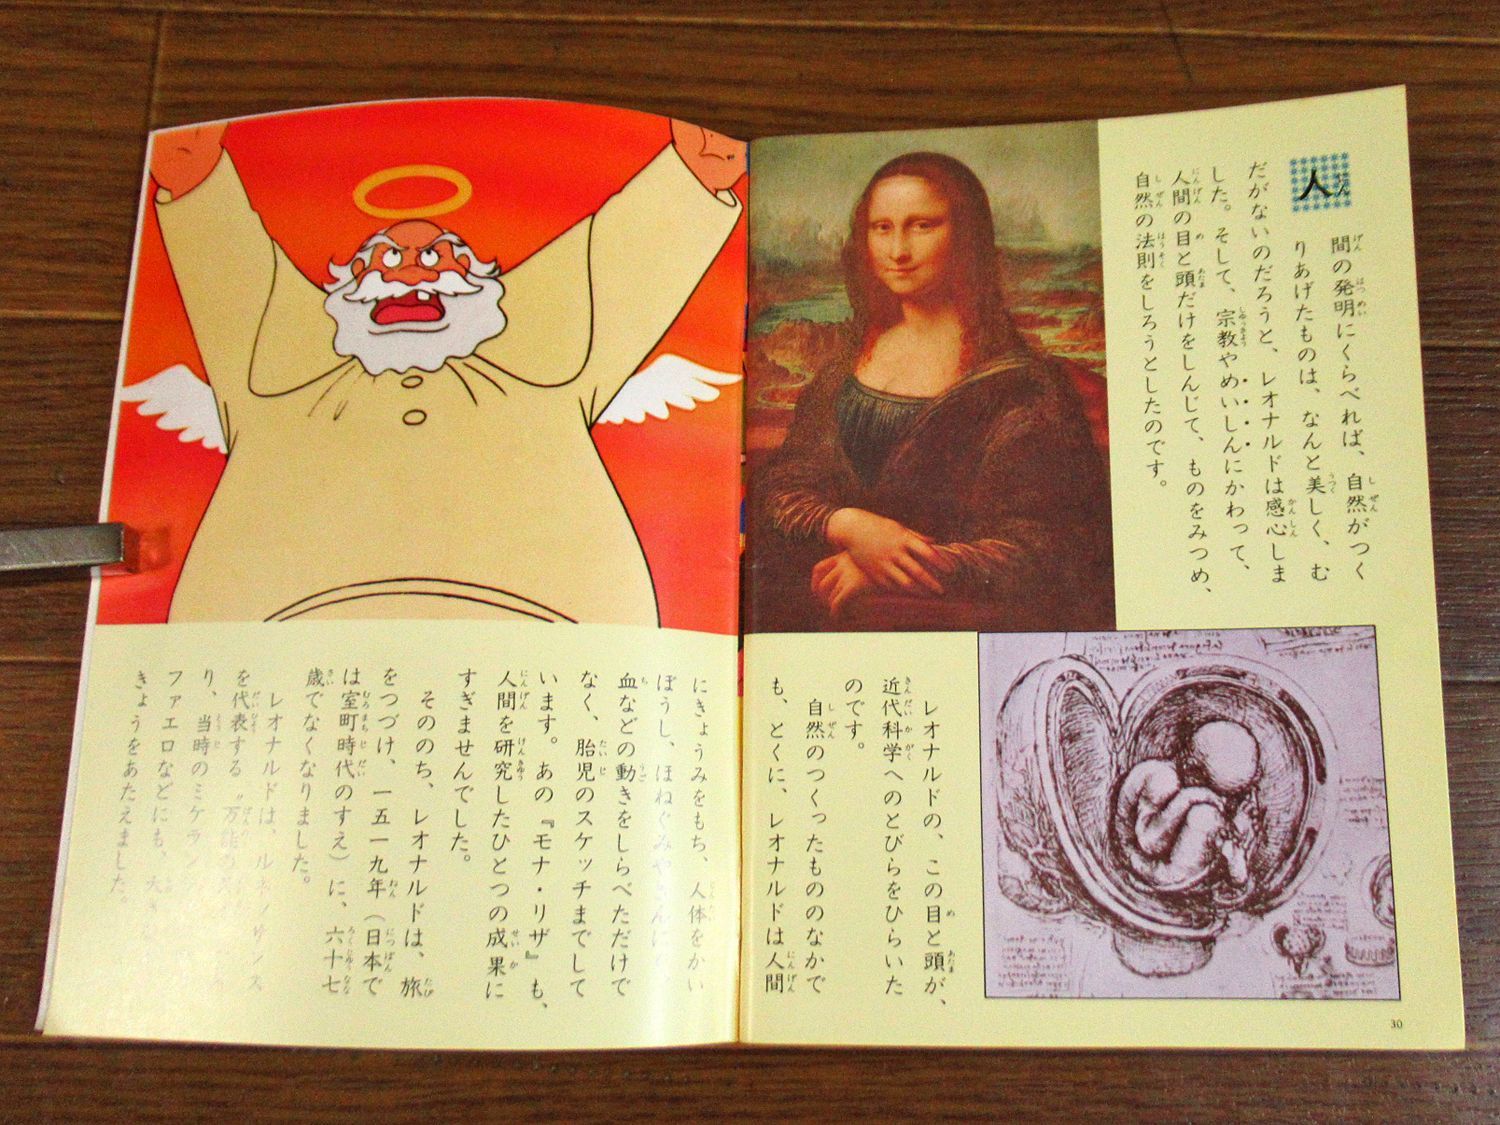 人間の発明にくらべれば、自然がつく
りあげたものは、なんと美しく、む
だがないのだろうと、レオナルドは感心しま
した。そして、宗教やめいしんにかわって、
人間の目と頭だけをしんじて、ものをみつめ、
自然の法則をしろうとしたのです。
レオナルドの、この目と頭が、
近代科学へのとびらをひらいた
のです。
自然のつくったもののなかで
も、とくに、レオナルドは人間
にきょうみをもち、人体をかい
ぼうし、ほねぐみや
血などの動きをしらべただけで
なく、胎児のスケッチまでして
います。あの『モナ・リザ』も、
人間を研究したひとつの成果に
すぎませんでした。
そののち、レオナルドは、旅
をつづけ、一五一九年（日本で
は室町時代のすえ）に、六十七
歳でなくなりました。
レオナルドは、ルネッサンス
を代表する〝万能の
り、当時のミケラン
ファエロなどにも、大
きょうをあたえました。
30